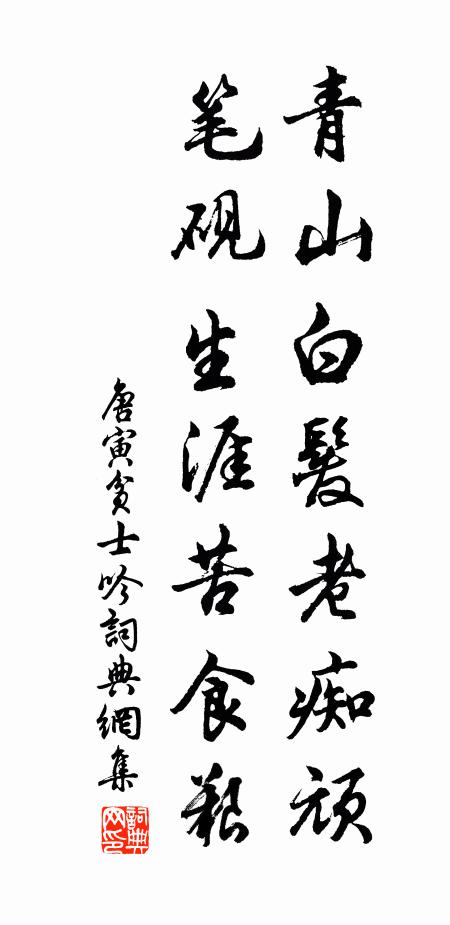 青山白髮老痴頑
笔硯生涯苦食艱
唐寅貧士吟詞典網集
詞典网印